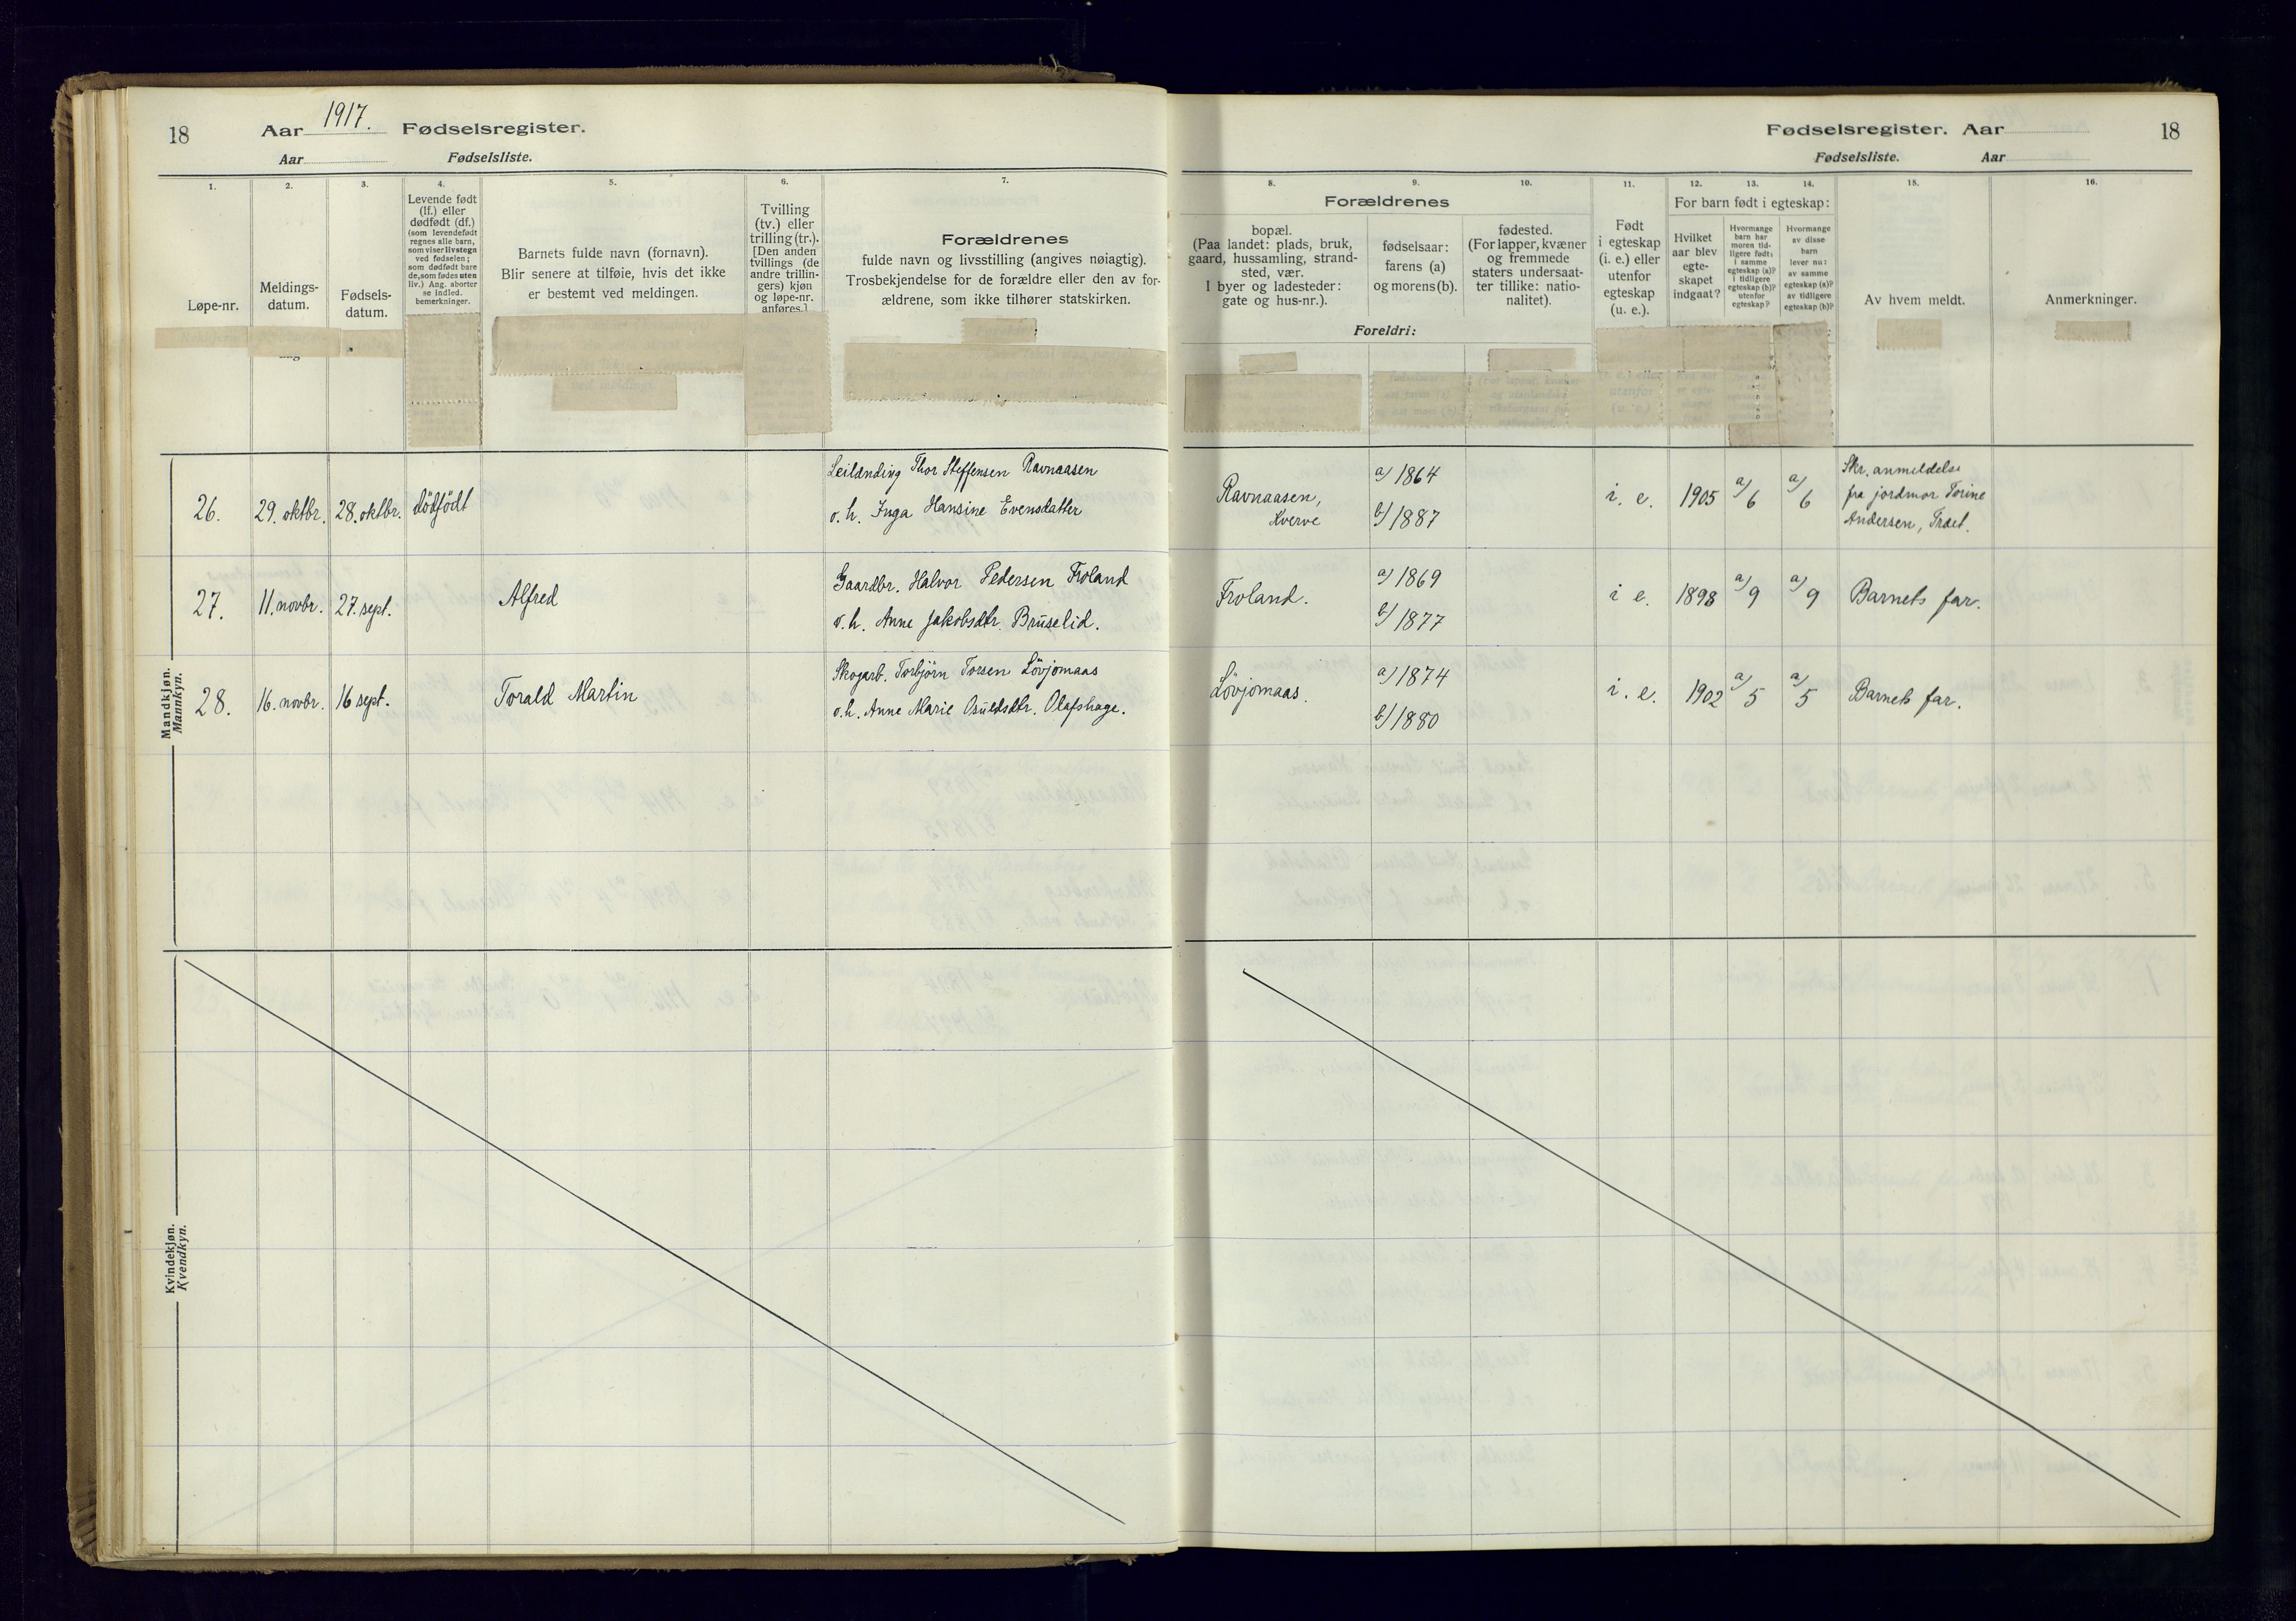 18
Aar 1917. Fødselsregister.
Aar Fødselsliste.
1.
2.
3.
4.
5.
6.
7.
Løpe-nr.
Meldings-
datum.
Fødsels-
datum.
Levende født
(lf.) eller
dødfødt (df.)
(som levendefødt
regnes alle barn,
som viser livstegn
ved fødselen;
som dødfødt bare
de, som fødes uten
liv.) Ang. aborter
se indled.
bemerkninger.
Barnets fulde navn (fornavn).
Blir senere at tilføie, hvis det ikke
er bestemt ved meldingen.
Tvilling
(tv.) eller
trilling (tr.).
[Den anden
tvillings (de
andre trillin-
gers) kjøn
og løpe-nr.
anføres.]
Forældrenes
fulde navn og livsstilling (angives nøiagtig).
Trosbekjendelse for de forældre eller den av for-
ældrene, som ikke tilhører statskirken.
Mandkjøn.
Mannkyn.
26. 29. oktbr. 28. oktbr. dödfödt Leilænding Thor Steffensen Ravnaasen
o. h. Inga Hansine Evensdatter
27. 11. novbr. 27. sept. Alfred Gaardbr. Halvor Pedersen Froland
o. h. Anne Jakobsdtr. Bruselid.
28. 16. novbr. 16 sept. Torald Martin Skogarb. Torbjörn Torsen Lövjomaas
o. h. Anne Marie Osuldsdtr. Olafshage.
Kvindekjøn.
Kvendkyn.
Fødselsregister. Aar 18
Fødselsliste. Aar
8.
9.
10.
11.
12.
13.
14.
15.
16.
Forældrenes
bopæl.
(Paa landet: plads, bruk,
gaard, hussamling, strand-
sted, vær.
I byer og ladesteder:
gate og hus-nr.).
fødselsaar:
farens (a)
og morens (b).
fødested.
(For lapper, kvæner
og fremmede
staters undersaat-
ter tillike: natio-
nalitet).
Foreldri:
Født
i egteskap
(i. e.) eller
utenfor
egteskap
(u. e.).
For barn født i egteskap:
Hvilket
aar blev
egte-
skapet
indgaat?
Hvormange
barn har
moren tid-
ligere født:
i samme
egteskap (a)?
i tidligere
egteskap (b)?
utenfor
egteskap?
Hvormange
av disse
barn
lever nu:
av samme
egteskap (a)?
av tidligere
egteskap (b)?
Av hvem meldt.
Anmerkninger.
Ravnaasen,
Kverve
a) 1864
b) 1887
i. e. 1905 a) 6 a) 6
Skr. anmeldelse
fra jordmor Torine
Andersen, Træt.
Froland.
a) 1869
b) 1877
i e. 1898 a) 9 a) 9 Barnets far.
Lövjomaas.
a) 1874
b) 1880
i. e. 1902 a) 5 a) 5 Barnets far.